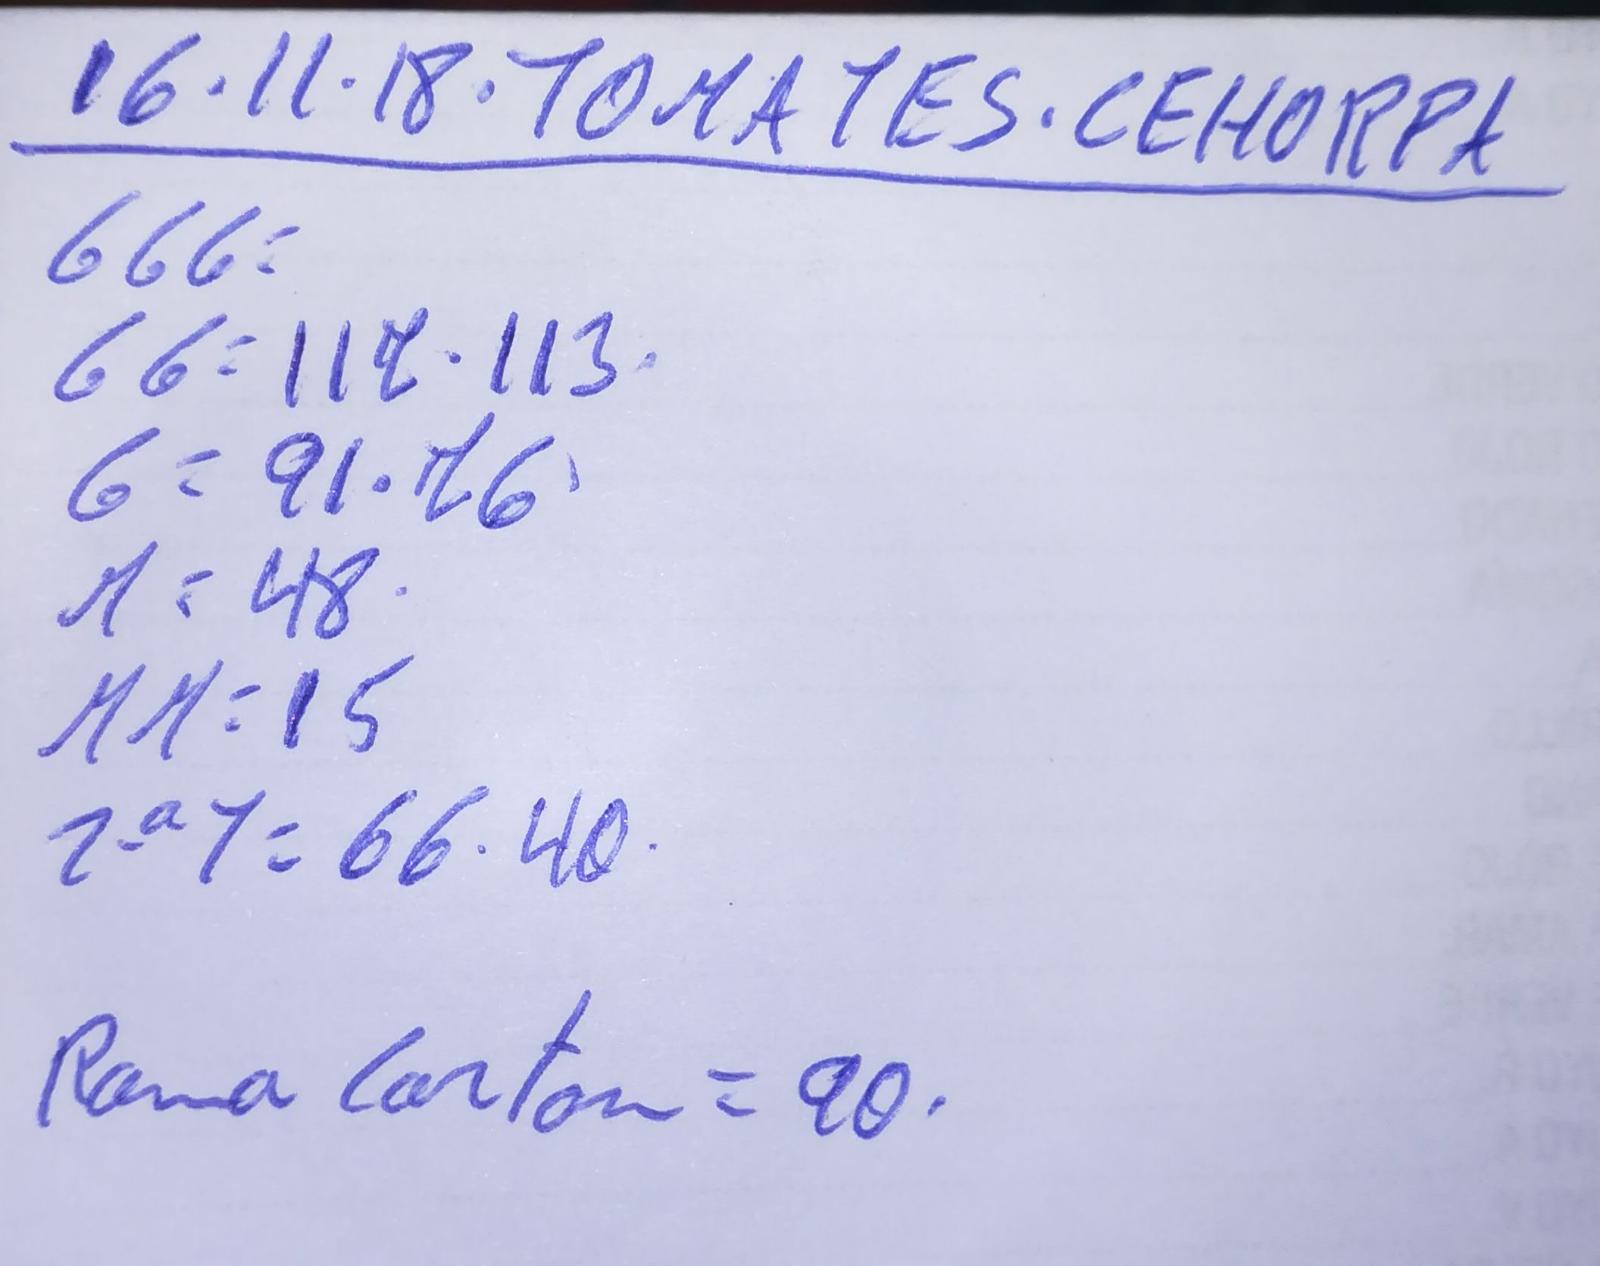 16.11.18. TOMATES. CEHORPA
GGG=
GG= 117. 113.
G= 91. 76
M= 48.
MM= 15
2ªT= 66. 40.
Rama Carton= 90.